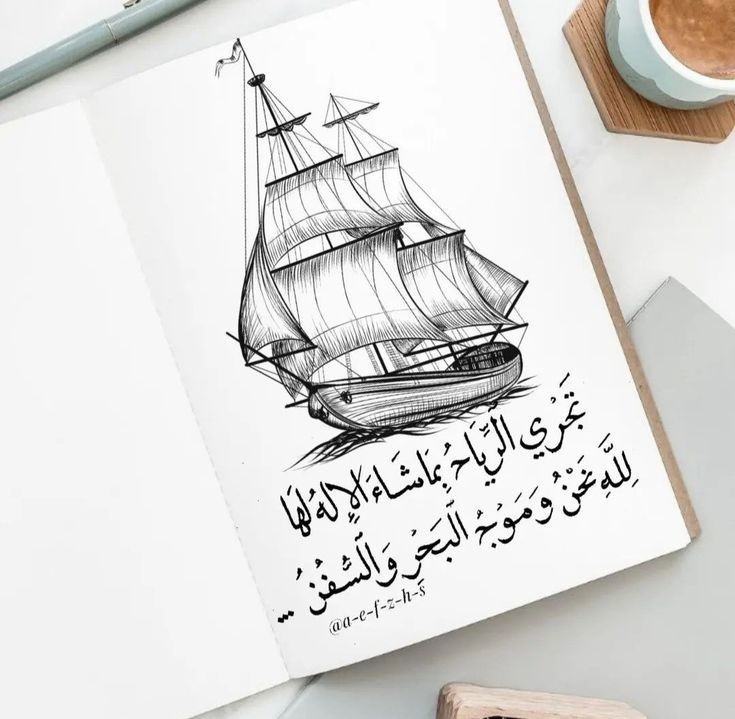 تَجْرِي الرِّيَاحُ بِمَا شَاءَ الإِلهُ لَهَا
لِلَّهِ نَحْنُ وَمَوْجُ الْبَحْرِ وَالسُّفُنُ ...
@a-e-f-z-h-s